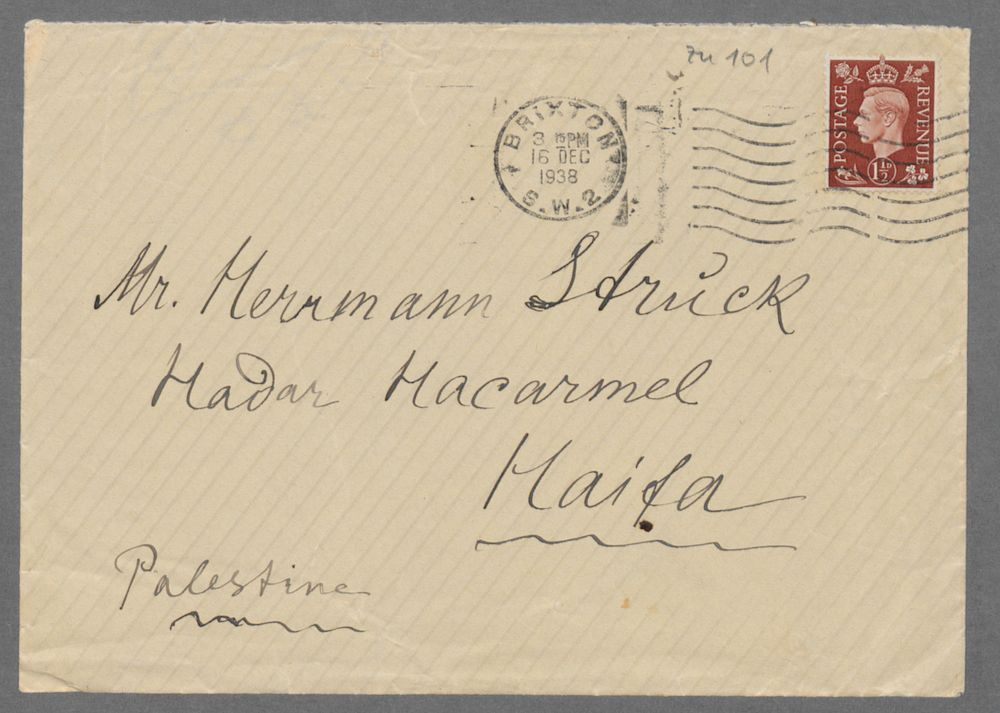 zu 101
BRIXTON
3 15 PM
16 DEC
1938
S.W.2
POSTAGE
REVENUE
1½D
Mr. Herrmann Struck
Hadar Hacarmel
Haifa
Palestine